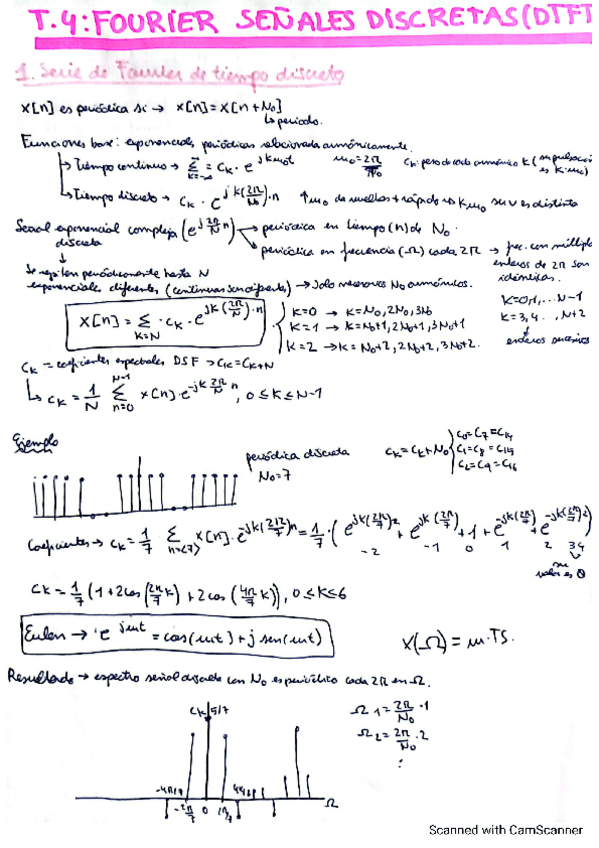 T.4: FOURIER SEÑALES DISCRETAS (DTFT
1. Serie de Fourier de tiempo discreto
x[n] es periódica si → x[n] = x[n + N₀]
↳ periodo.
Funciones base: exponenciales periódicas relacionadas armónicamente.
↳ Tiempo continuo → Σ k=-∞ ∞ = cₖ · e^(jkω₀t) ω₀ = 2π/T₀
↳ Tiempo discreto → cₖ · e^(jk(2π/N₀)·n) ↑ω₀ de muellas + rápido kω₀ es distinta
Señal exponencial compleja (e^(j(2π/N)n)) → periódica en tiempo (n) de N₀.
discreta → periódica en frecuencia (Ω) cada 2π → frec. con múltiplos
enteros de 2π son
idénticas.
Se repiten periódicamente hasta N
exponenciales diferentes (continuas son diferentes) → Solo necesarios N₀ armónicos.
x[n] = Σ k=N · cₖ · e^(jk(2π/N)·n)
k=0 → k=N₀, 2N₀, 3N₀
k=1 → k=N₀+1, 2N₀+1, 3N₀+1
k=2 → k=N₀+2, 2N₀+2, 3N₀+2.
k=0,1,...N-1
k=3,4...,N+2
enteros sucesivos
cₖ = coeficientes espectrales DSF → cₖ = cₖ+N
↳ cₖ = 1/N Σ n=0 N-1 x[n]·e^(-jk 2π/N n), 0 ≤ k ≤ N-1
Ejemplo
periódica discreta
N₀=7
cₖ = cₖ+N₀
c₀=c₇=c₁₄
c₁=c₈=c₁₅
c₂=c₉=c₁₆
Coeficientes → cₖ = 1/7 Σ n=<7> x[n]·e^(-jk(2π/7)n) = 1/7 · (e^(jk(2π/7)2) + e^(jk(2π/7)) + 1 + e^(-jk(2π/7)) + e^(-jk(2π/7)2))
-2 -1 0 1 2 3 4
su
valor es 0
cₖ = 1/7 (1 + 2cos(2π/7 k) + 2cos(4π/7 k)), 0 ≤ k ≤ 6
Euler → e^(jωt) = cos(ωt) + j sen(ωt)
X(Ω) = ω·TS.
Resultado → espectro señal discreta con N₀ es periódico cada 2π en Ω.
cₖ 5/7
Ω₁ = 2π/N₀ · 1
Ω₂ = 2π/N₀ · 2
:
-4π/7 -2π/7 0 2π/7 4π/7 Ω
Scanned with CamScanner